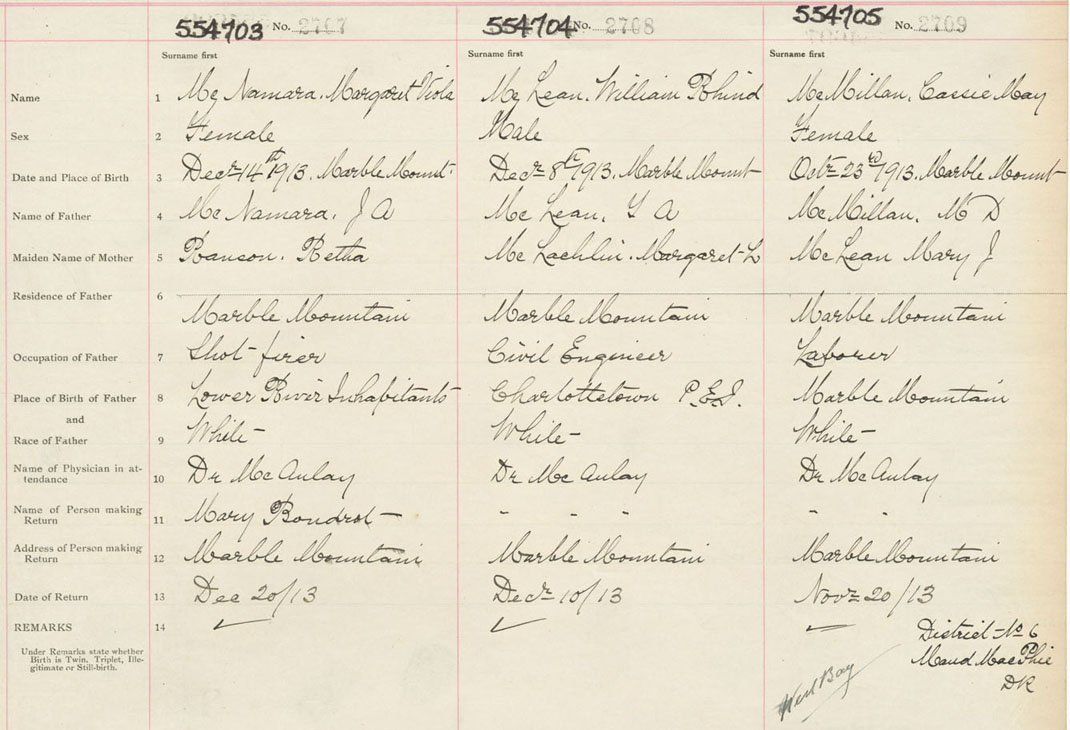 554703 No. 2707 554704 No. 2708 554705 No. 2709
Surname first Surname first Surname first
Name 1 Mc Namara. Margaret Viola Mc Lean. William Mc Millan. Cassie May
Sex 2 Female Male Female
Date and Place of Birth 3 Decr 14th 1913. Marble Mount. Decr 8th 1913. Marble Mount Octr 23rd 1913. Marble Mount
Name of Father 4 Mc Namara. J A Mc Lean. Mc Millan. M D
Maiden Name of Mother 5 Retha Mc Lachlin. Margaret L Mc Lean Mary J
Residence of Father 6 Marble Mountain Marble Mountain Marble Mountain
Occupation of Father 7 Shot-firer Civil Engineer Laborer
Place of Birth of Father 8 Lower River Inhabitants Charlottetown P.E.I. Marble Mountain
and
Race of Father 9 White White White
Name of Physician in at-
tendance 10 Dr Mc Aulay Dr Mc Aulay Dr Mc Aulay
Name of Person making
Return 11 Mary Boudrot " " " " "
Address of Person making
Return 12 Marble Mountain Marble Mountain Marble Mountain
Date of Return 13 Dec 20/13 Decr 10/13 Novr 20/13
REMARKS 14 ✓ ✓ ✓
Under Remarks state whether
Birth is Twin, Triplet, Ille-
gitimate or Still-birth.
District No 6
Maud MacPhie
DR
West Bay